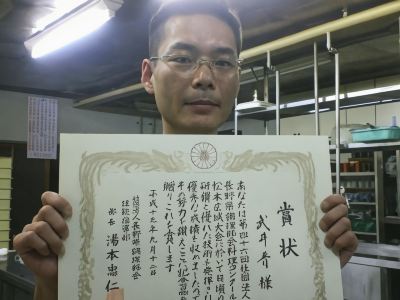 賞状
武井昇様
あなたは第四十六回社団法人
長野県調理師会料理コンクール
松本広域大会に於いて日頃の
研鑽と優れた技術を発揮され
優秀な成績を収めました
その努力を讃え
贈りこれを賞します
平成十三年九月十二日
社団法人長野県調理師会
会長 湯本忠仁